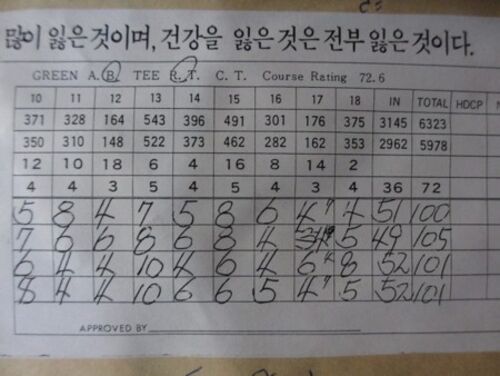 많이 잃은 것이며, 건강을 잃은 것은 전부 잃은 것이다.
GREEN A. B. TEE R. T. C. T. Course Rating 72.6
10 11 12 13 14 15 16 17 18 IN TOTAL HDCP
371 328 164 543 396 491 301 176 375 3145 6323
350 310 148 522 373 462 282 162 353 2962 5978
12 10 18 6 4 16 8 14 2
4 4 3 5 4 5 4 3 4 36 72
5 8 4 7 5 8 6 4 4 51 100
7 6 6 8 6 8 4 5 49 105
6 4 4 10 4 6 4 6 8 52 101
8 4 4 10 6 6 5 4 5 52 101
APPROVED BY